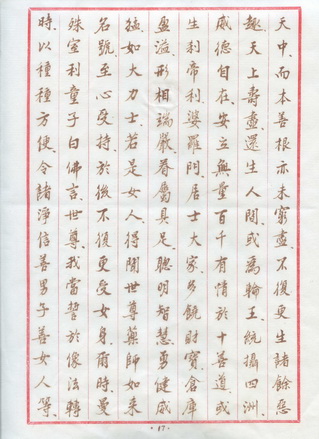 天中、而本善根亦未窮盡、不復更生諸餘惡
趣、天上壽盡、還生人間、或為輪王、統攝四洲、
威德自在、安立無量百千有情、於十善道、或
生剎帝利、婆羅門、居士大家、多饒財寶、倉庫
盈溢、形相端嚴、眷屬具足、聰明智慧、勇健威
猛、如大力士、若是女人、得聞世尊藥師如來
名號、至心受持、於後不復更受女身、爾時、曼
殊室利童子白佛言、世尊、我當誓於像法轉
時、以種種方便、令諸淨信善男子善女人等、
·17·